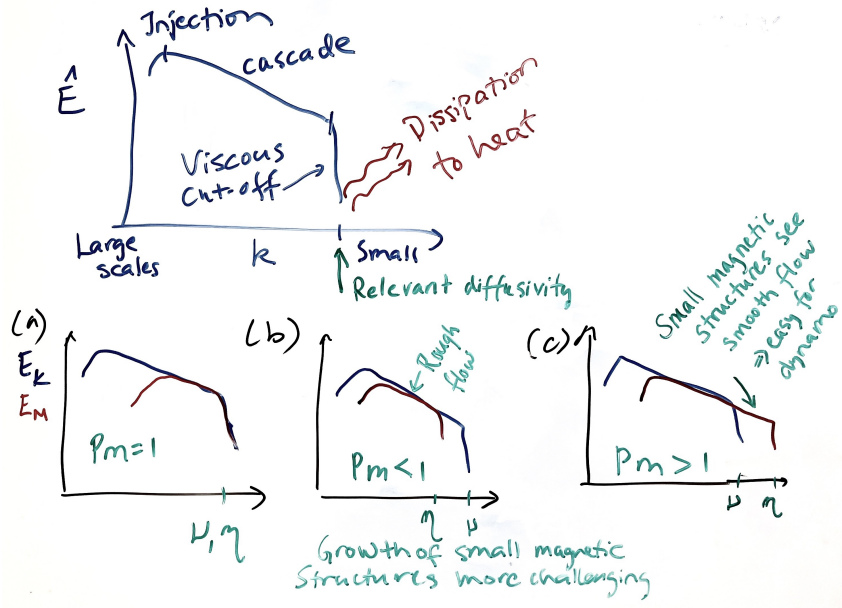 Injection
cascade
Ê
Viscous
Cut-off
Dissipation
to heat
Large
scales
k
Small
Relevant diffusivity
(a)
E_K
E_M
Pm=1
ν, η
(b)
Rough
flow
Pm<1
η
ν
Growth of small magnetic
Structures more challenging
(c)
Small magnetic
structures see
smooth flow
⇒ easy for
dynamo
Pm>1
ν
η